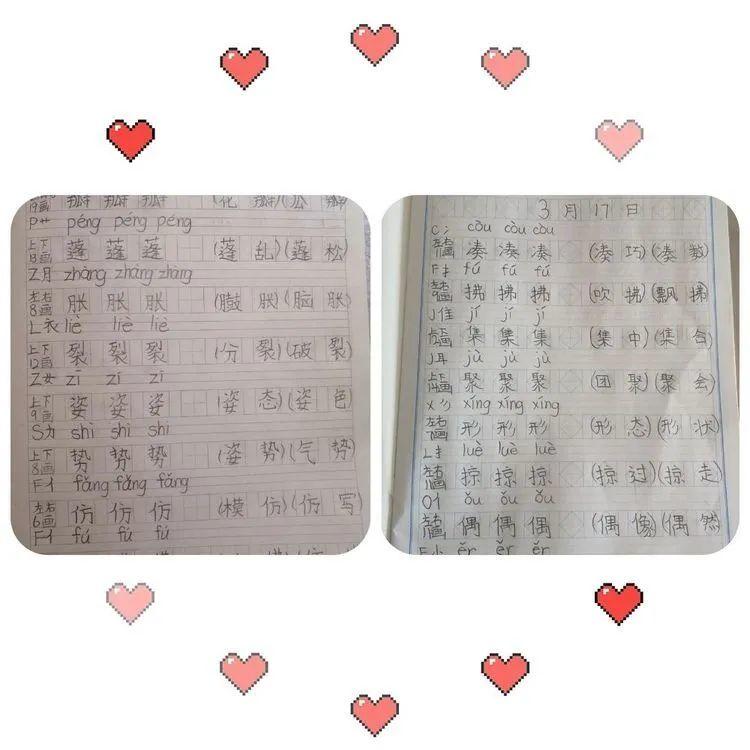 19画 瓣 瓣 瓣 (花 瓣)(瓜 瓣)
P艹 péng péng péng
上下 13画 蓬 蓬 蓬 (蓬 乱)(蓬 松)
Z月 zhàng zhàng zhàng
左右 8画 胀 胀 胀 (膨 胀)(脑 胀)
L衣 liè liè liè
上下 12画 裂 裂 裂 (分 裂)(破 裂)
Z女 zī zī zī
上下 9画 姿 姿 姿 (姿 态)(姿 色)
S力 shì shì shì
上下 8画 势 势 势 (姿 势)(气 势)
F亻 fǎng fǎng fǎng
左右 6画 仿 仿 仿 (模 仿)(仿 写)
F亻 fú fú fú
3 月 17 日
C冫 còu còu còu
左右 画 凑 凑 凑 (凑 巧)(凑 数)
F扌 fú fú fú
左右 画 拂 拂 拂 (吹 拂)(飘 拂)
J隹 jí jí jí
画 集 集 集 (集 中)(集 合)
J耳 jù jù jù
画 聚 聚 聚 (团 聚)(聚 会)
X彡 xíng xíng xíng
左右 7画 形 形 形 (形 态)(形 状)
L扌 luè luè luè
左右 画 掠 掠 掠 (掠 过)(掠 走)
O亻 ǒu ǒu ǒu
左右 画 偶 偶 偶 (偶 像)(偶 然)
E小 ěr ěr ěr